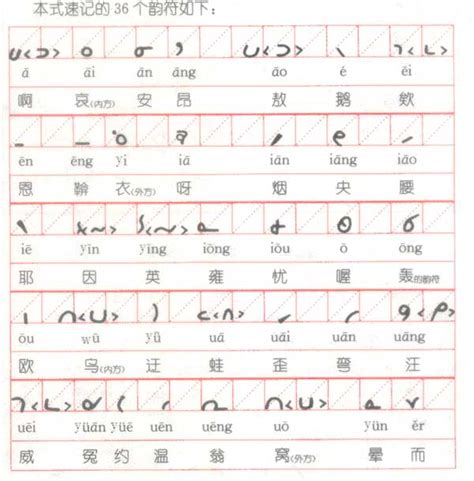 本式速记的36个韵符如下：
ā āi ān āng āo é ēi
啊 哀(内方) 安 昂 敖 鹅 欸
ēn ēng yī iā iān iāng iāo
恩 鞥 衣(外方) 呀 烟 央 腰
iē yīn yīng iōng iōu ō ōng
耶 因 英 雍 忧 喔 轰的韵符
ōu wū yǖ uā uāi uān uāng
欧 乌(内方) 迂 蛙 歪 弯 汪
uēi yüān yüē uēn uēng uō yün ěr
威 冤 约 温 翁 窝(外方) 晕 而